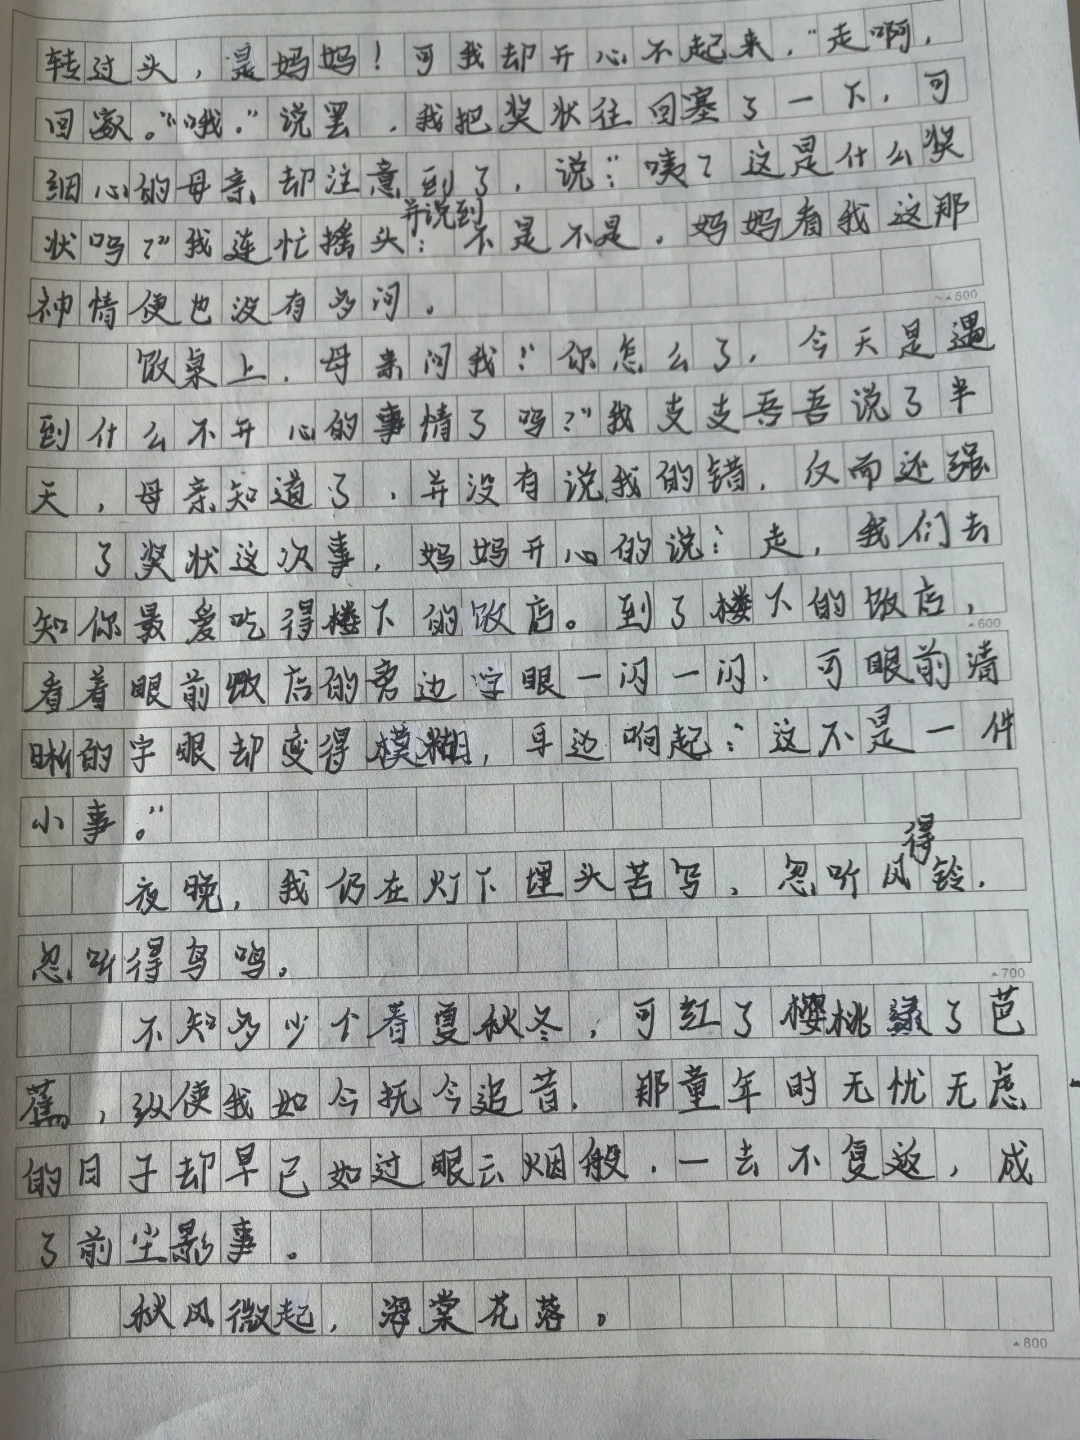 转过头，是妈妈！可我却开心不起来，“走啊，
回家。”“哦。”说罢，我把奖状往回塞了一下，可
细心的母亲却注意到了，说：“咦？这是什么奖
并说到
状吗？”我连忙摇头：不是不是。妈妈看我这那
神情便也没有多问。
500
饭桌上，母亲问我：“你怎么了，今天是遇
到什么不开心的事情了吗？”我支支吾吾说了半
天，母亲知道了，并没有说我的错，反而还强
了奖状这次事，妈妈开心的说：走，我们去
知你最爱吃得楼下的饭店。到了楼下的饭店，
600
看着眼前饭店的旁边字眼一闪一闪，可眼前清
晰的字眼却变得模糊，耳边响起：“这不是一件
小事。”
得
夜晚，我仍在灯下埋头苦写，忽听风铃，
忽听得鸟鸣。
700
不知多少个春夏秋冬，可红了樱桃绿了芭
蕉，纵使我如今抚今追昔，那童年时无忧无虑
的日子却早已如过眼云烟般，一去不复返，成
了前尘影事。
秋风微起，海棠花落。
800